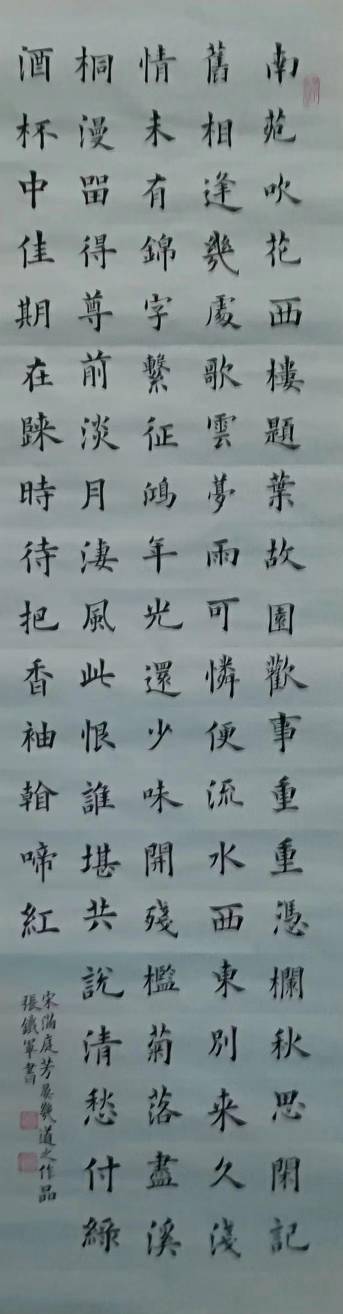 南苑吹花西樓題葉故園歡事重重憑欄秋思閑記
舊相逢幾處歌雲夢雨可憐便流水西東別來久淺
情未有錦字繫征鴻年光還少味開殘檻菊落盡溪
桐漫留得尊前淡月淒風此恨誰堪共說清愁付綠
酒杯中佳期在踈時待把香袖翰啼紅
宋滿庭芳晏幾道之作品
張鐵軍書